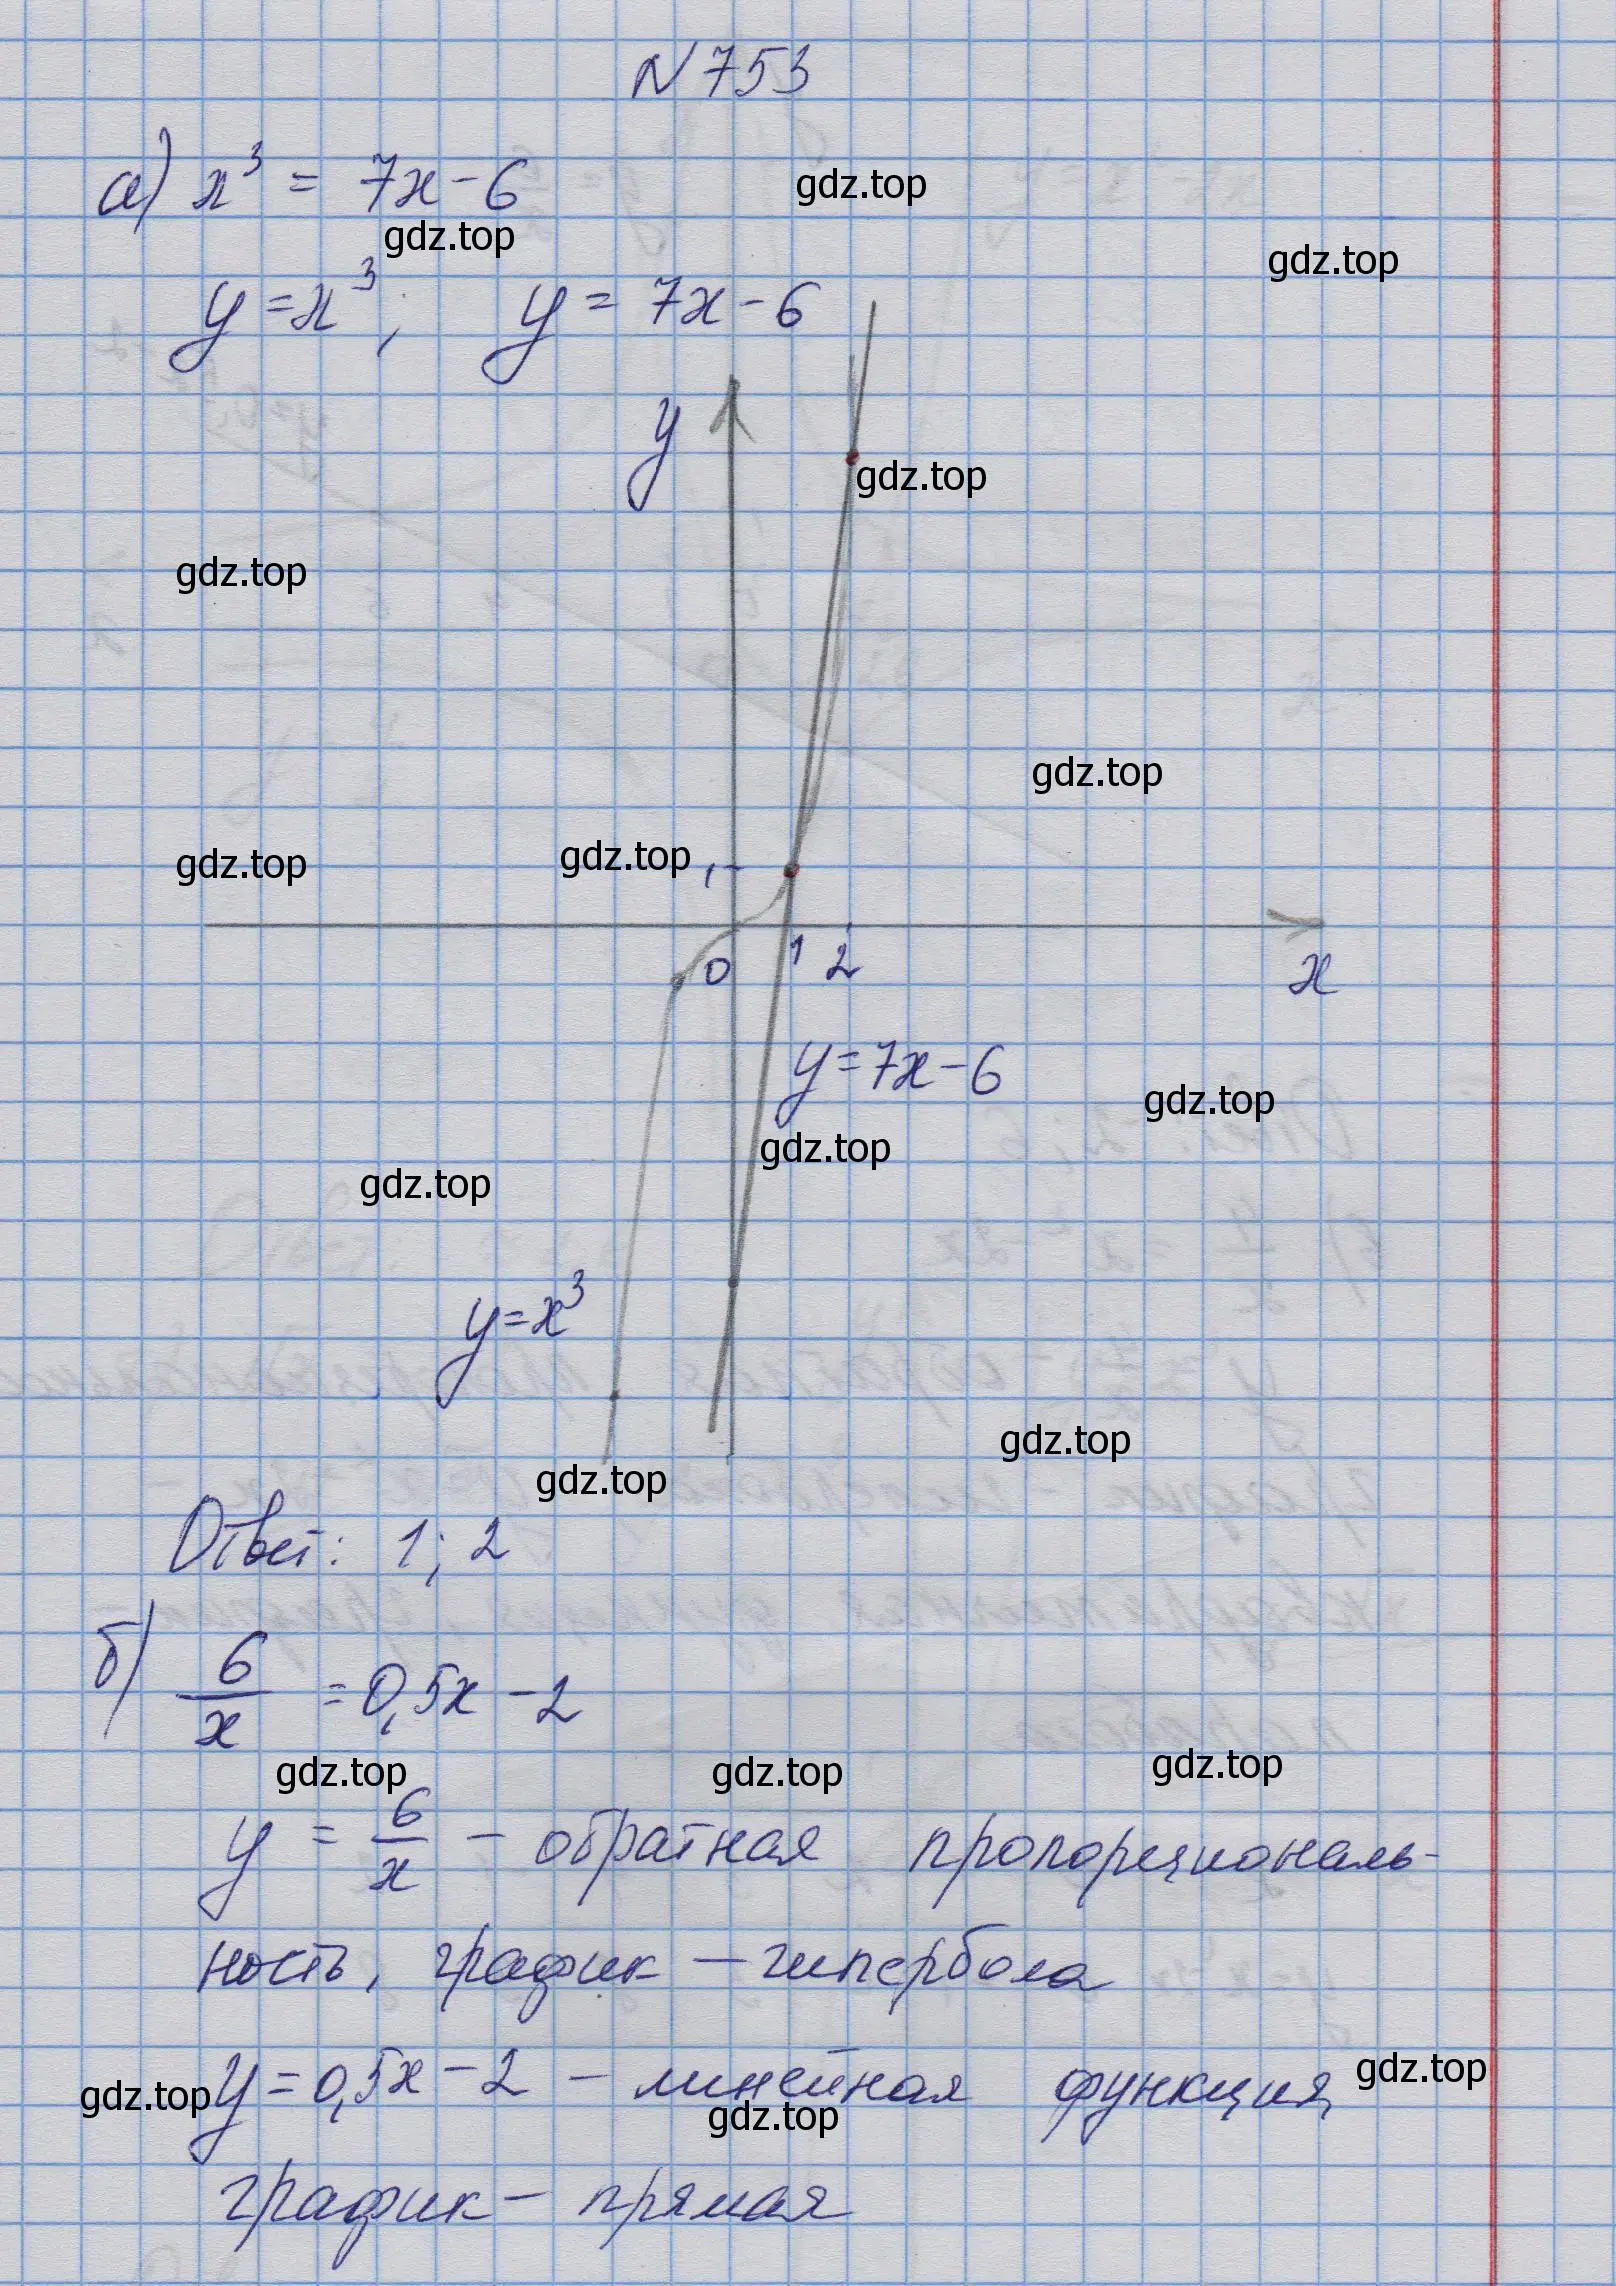 N753
а) x³ = 7x - 6
gdz.top
gdz.top
gdz.top
y = x³; y = 7x - 6
y
gdz.top
gdz.top
gdz.top
gdz.top
gdz.top
1
0 1 2
x
y = 7x - 6
gdz.top
gdz.top
gdz.top
y = x³
gdz.top
gdz.top
Ответ: 1; 2
б) 6/x = 0,5x - 2
gdz.top gdz.top gdz.top
y = 6/x - обратная пропорциональ-
ность, график - гипербола
gdz.top y = 0,5x - 2 - линейная функция, gdz.top
gdz.top
график - прямая